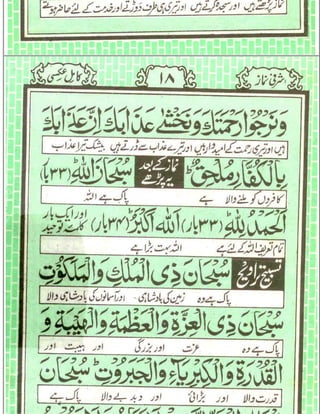 نماز پڑھتے ہیں اور سجدہ کرتے ہیں اور تیری ہی طرف دوڑتے اور خدمت کے لئے حاضر ہوتے
شرفی نماز ۱۸ کامل عکسی
وَنَرْجُوْا رَحْمَتَكَ وَنَخْشٰى عَذَابَكَ اِنَّ عَذَابَكَ
ہیں اور تیری رحمت کے امیدوار ہیں اور تیرے عذاب سے ڈرتے ہیں بیشک تیرا عذاب
بِالْكُفَّارِ مُلْحِقٌ نماز کے بعد یہ پڑھے سُبْحَانَ اللّٰهِ (۳۳ بار)
کافروں کو ملنے والا ہے پاک ہے اللہ
اَلْحَمْدُ لِلّٰهِ (۳۳ بار) اَللّٰهُ اَكْبَرُ (۳۴ بار) اور ایک بار کلمہ توحید
تمام تعریف اللہ کے لئے ہے اللہ بہت بڑا ہے
تسبیح تراویح سُبْحَانَ ذِى الْمُلْكِ وَالْمَلَكُوْتِ
پاک ہے وہ زمین کی بادشاہی اور آسمانوں کی بادشاہی والا
سُبْحَانَ ذِى الْعِزَّةِ وَالْعَظَمَةِ وَالْهَيْبَةِ وَ
پاک ہے وہ عزت اور بزرگی اور ہیبت اور
الْقُدْرَةِ وَالْكِبْرِيَآءِ وَالْجَبَرُوْتِ سُبْحَانَ
قدرت والا اور بڑائی اور دبدبے والا پاک ہے